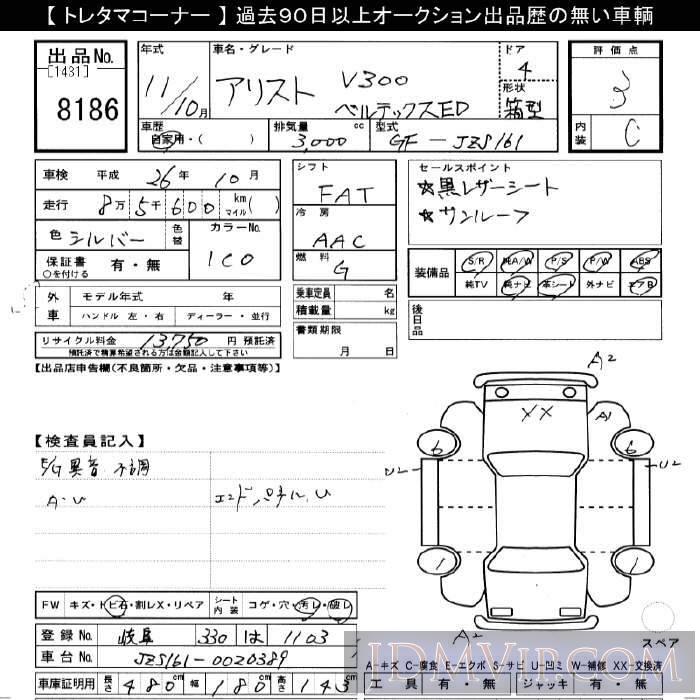 【 トレタマコーナー 】過去90日以上オークション出品歴の無い車輌
出品No.
[1431]
8186
年式
11/10月
車名・グレード
アリスト V300
ベルテックスED
ドア
4
形状
箱型
評価点
3
内装
C
車歴
自家用・( )
排気量
3,000 cc
型式
GF-JZS161
車検 平成 26年 10月
走行 8万5千600 km マイル( )
色 シルバー
色替
カラーNo.
1C0
保証書 有・無
○を付ける
シフト
FAT
冷房
AAC
燃料
G
セールスポイント
☆黒レザーシート
☆サンルーフ
装備品
S/R 純A/W P/S P/W ABS
純TV 純ナビ 革シート 外ナビ エアB
外車
モデル年式 年
ハンドル 左・右 ディーラー・並行
乗車定員 名
積載量 kg
後日品
リサイクル料金 13,750 円 預託済
預託済で精算希望される方は金額記入して下さい
書類期限
月 日
【出品店申告欄(不良箇所・欠品・注意事項等)】
【検査員記入】
E/G異音 不調
A・U
エンドパネル、U
A2
XX
A1
6
6
U2
U2
1
1
A2
FW キズ・トビ石・割レX・リペア
シート内装 コゲ・穴・汚レ・破レ
登録No. 岐阜 330 は 1103
車台No. JZS161-0020389
車庫証明用 長さ 480cm 幅 180cm 高さ 143cm
スペア
A-キズ C-腐食 E-エクボ S-サビ U-凹ミ W-補修 XX-交換済
工具 有・無 ジャッキ 有・無
IMPORT-JDM.COM